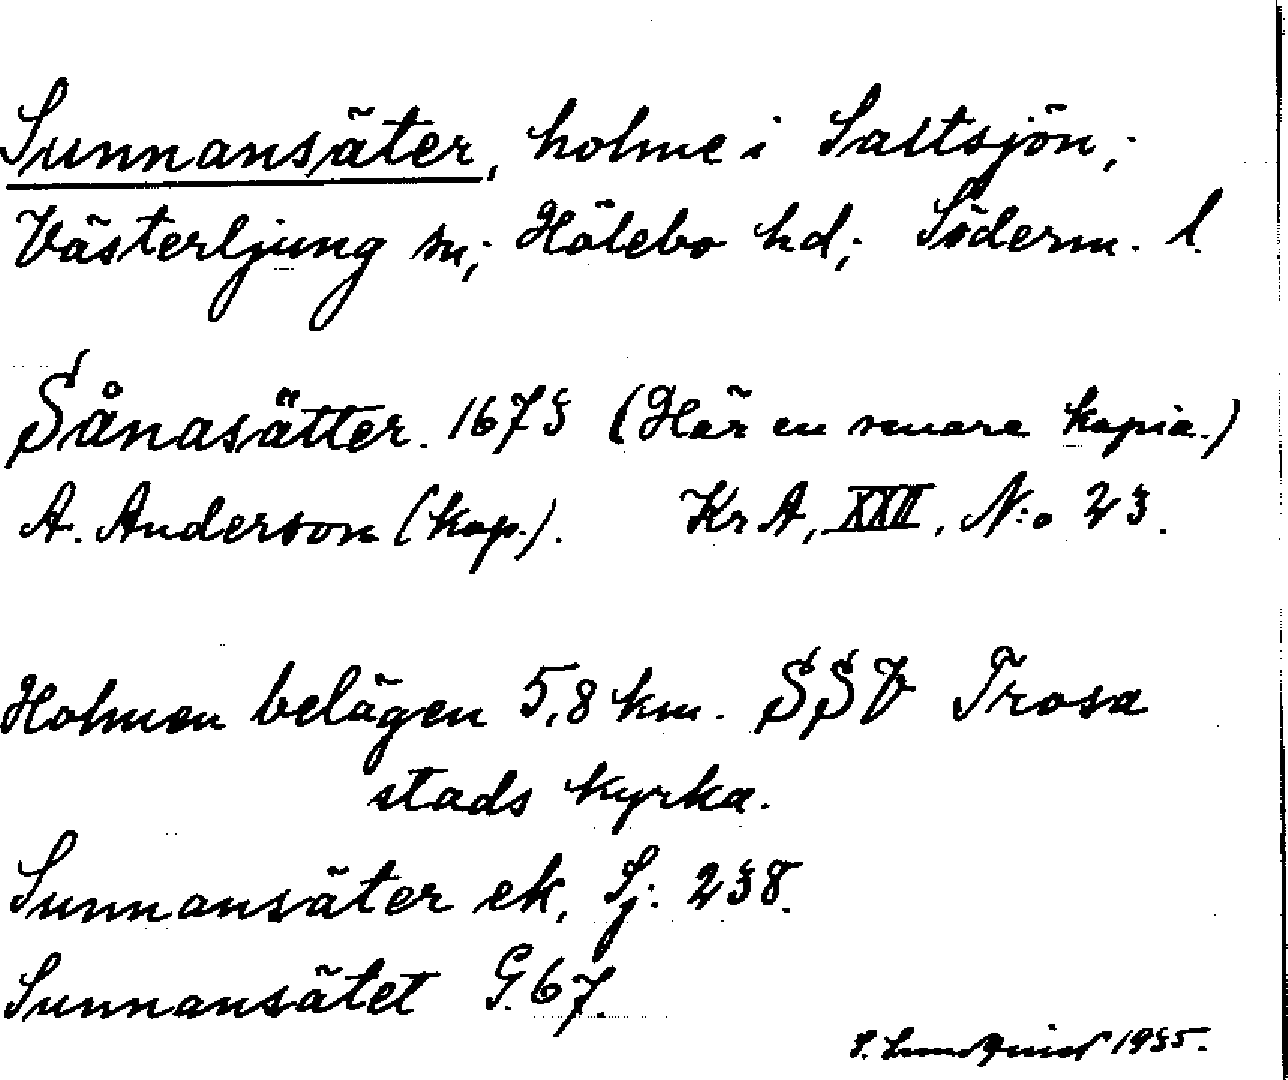 Sunnansäter, holme i Saltsjön,
Västerljung sn, Hölebo hd, Söderm. l.
Sånasätter. 1673 (Här en senare kopia.)
A. Anderson (kop.). KrA, XXII, N:o 23.
Holmen belägen 5,8 km. SSV Trosa
stads kyrka.
Sunnansäter ek, Sj. 238.
Sunnansätet G. 67.
S. Lundqvist 1935.